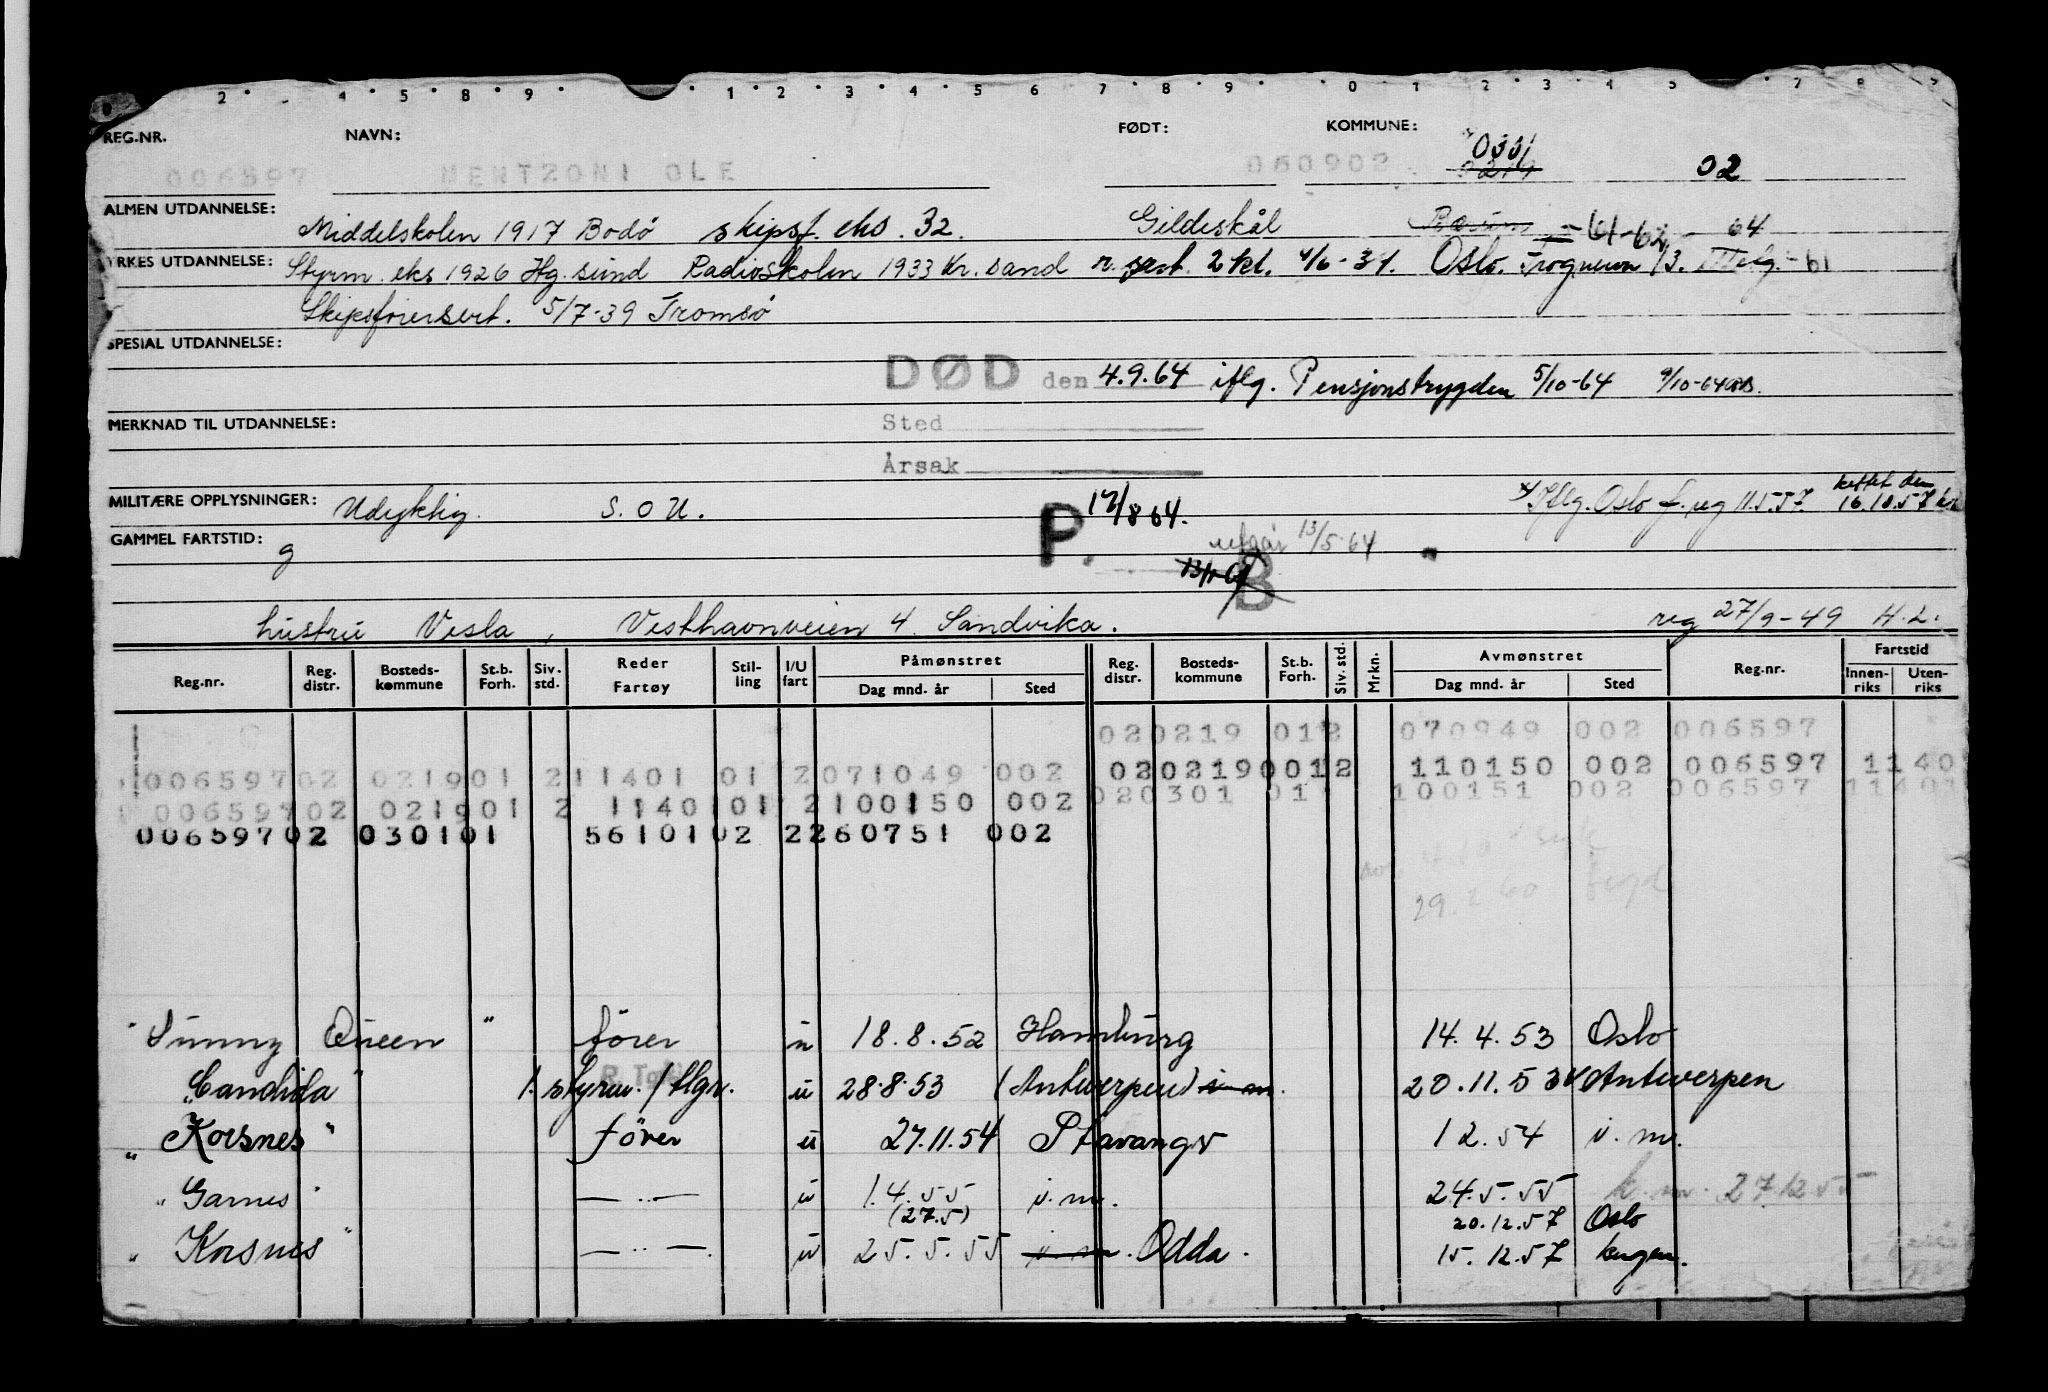 2 4 5 8 9 1 2 3 4 5 6 7 8 9 0 1 2 3 4 5 7 8
REG.NR. NAVN: FØDT: KOMMUNE:
0301
006597 MENTZONI OLE 060902 0219 02
ALMEN UTDANNELSE: Middelskolen 1917 Bodø skipsf. eks. 32. Gildeskål Bærum - 61-62 - 64
YRKES UTDANNELSE: Styrm. eks 1926 Hg.sund Radioskolen 1933 Kr.sand r. sert. 2 kl. 4/6-34. Oslo. 13. - 61
Skipsførersert. 5/7-39 Tromsø
SPESIAL UTDANNELSE:
DØD den 4.9.64 iflg. Pensjonstrygden 5/10-64 9/10-64
MERKNAD TIL UTDANNELSE: Sted
Årsak
MILITÆRE OPPLYSNINGER: Udyktig. S.O.U. P. 17/8 64. Iflg. Oslo f.reg 11.5.57 16.10.57
GAMMEL FARTSTID: g utgår 13/5-64
B
hustru Vesla, Vesthavnveien 4. Sandvika. reg 27/9-49 H.L.
Reg.nr. Reg. distr. Bosteds-kommune St.b. Forh. Siv. std. Reder Fartøy Stil-ling I/U fart Påmønstret Dag mnd. år Sted Reg. distr. Bosteds-kommune St.b. Forh. Siv. std. Mrkn. Avmønstret Dag mnd. år Sted Reg.nr. Fartstid Innen-riks Uten-riks
020219 012 070949 002 006597
00659702 021901 211401 01 2071049 002 0202190012 110150 002 006597 1140
00659702 021901 2 1140101 2100150 002 020301 01 100151 002 006597 11401
00659702 030101 5610102 2260751 002
29. 60
Sunny Queen " fører u 18.8.52 Hamburg 14.4.53 Oslo
"Candida" 1. styrm./tlgr. u 28.8.53 (Antwerpen) i.m. 20.11.534 Antwerpen
"Korsnes" fører u 27.11.54 Stavanger 12.54 i.m.
"Garnes" — " — u 1.4.55 i.m. 24.5.55 k.m. 27.12.55
(27.5) 20.12.57 Oslo
"Korsnes" — " — u 25.5.55 i.m. Odda. 15.12.57